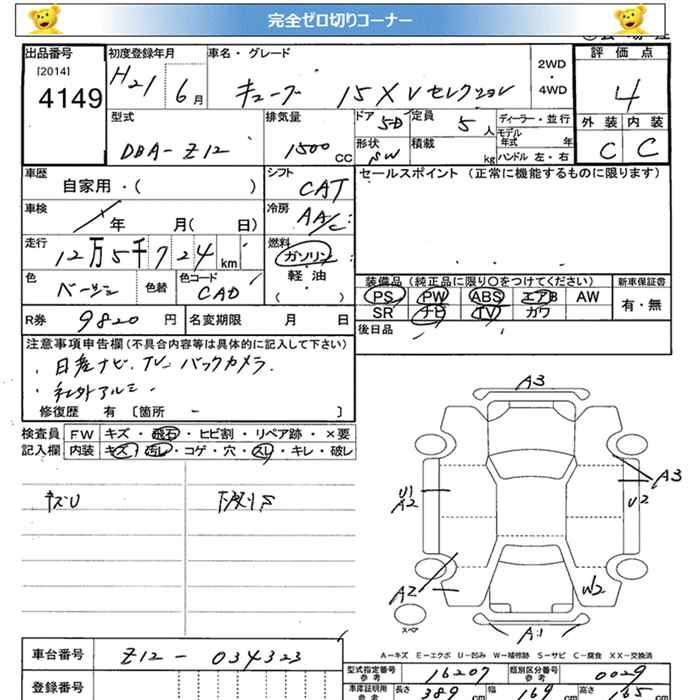 完全ゼロ切りコーナー
出品番号
[2014]
4149
初度登録年月
H21 6月
車名・グレード
キューブ 15X Vセレクション
2WD
・
4WD
評価点
4
外装 内装
C C
型式
DBA-Z12
排気量
1500 cc
ドア
5D
定員
5人
形状
SW
積載
kg
ディーラー・並行
モデル年式 年
ハンドル 左・右
車歴
自家用・( )
シフト
CAT
セールスポイント (正常に機能するものに限ります)
車検
年 月( 日)
冷房
AAC
走行
12万5千724km
燃料
ガソリン
軽油
( ・ )
色
ベージュ
色替
色コード
CAD
装備品 (純正品に限り○をつけてください)
新車保証書
PS PW ABS エアB AW
有・無
SR ナビ TV カワ
R券 9820円
名変期限 月 日
後日品
注意事項申告欄 (不具合内容等は具体的に記入して下さい)
・日産ナビ.TV.バックカメラ.
・社外アルミ
修復歴 有 [箇所 - ]
検査員
記入欄
FW キズ・飛石・ヒビ割・リペア跡・×要
内装 キズ・汚レ・コゲ・穴・スレ・キレ・破レ
キズU
下廻りS
A3
A3
U2
U1
A2
A2
W2
スペア
A1
A-キズ E-エクボ U-凹み W-補修跡 S-サビ C-腐食 XX-交換済
車台番号 Z12-034323
登録番号
型式指定番号
参考
16207
類別区分番号
参考
0029
車庫証明用
参考
長さ 389 cm
幅 169 cm
高さ 165 cm